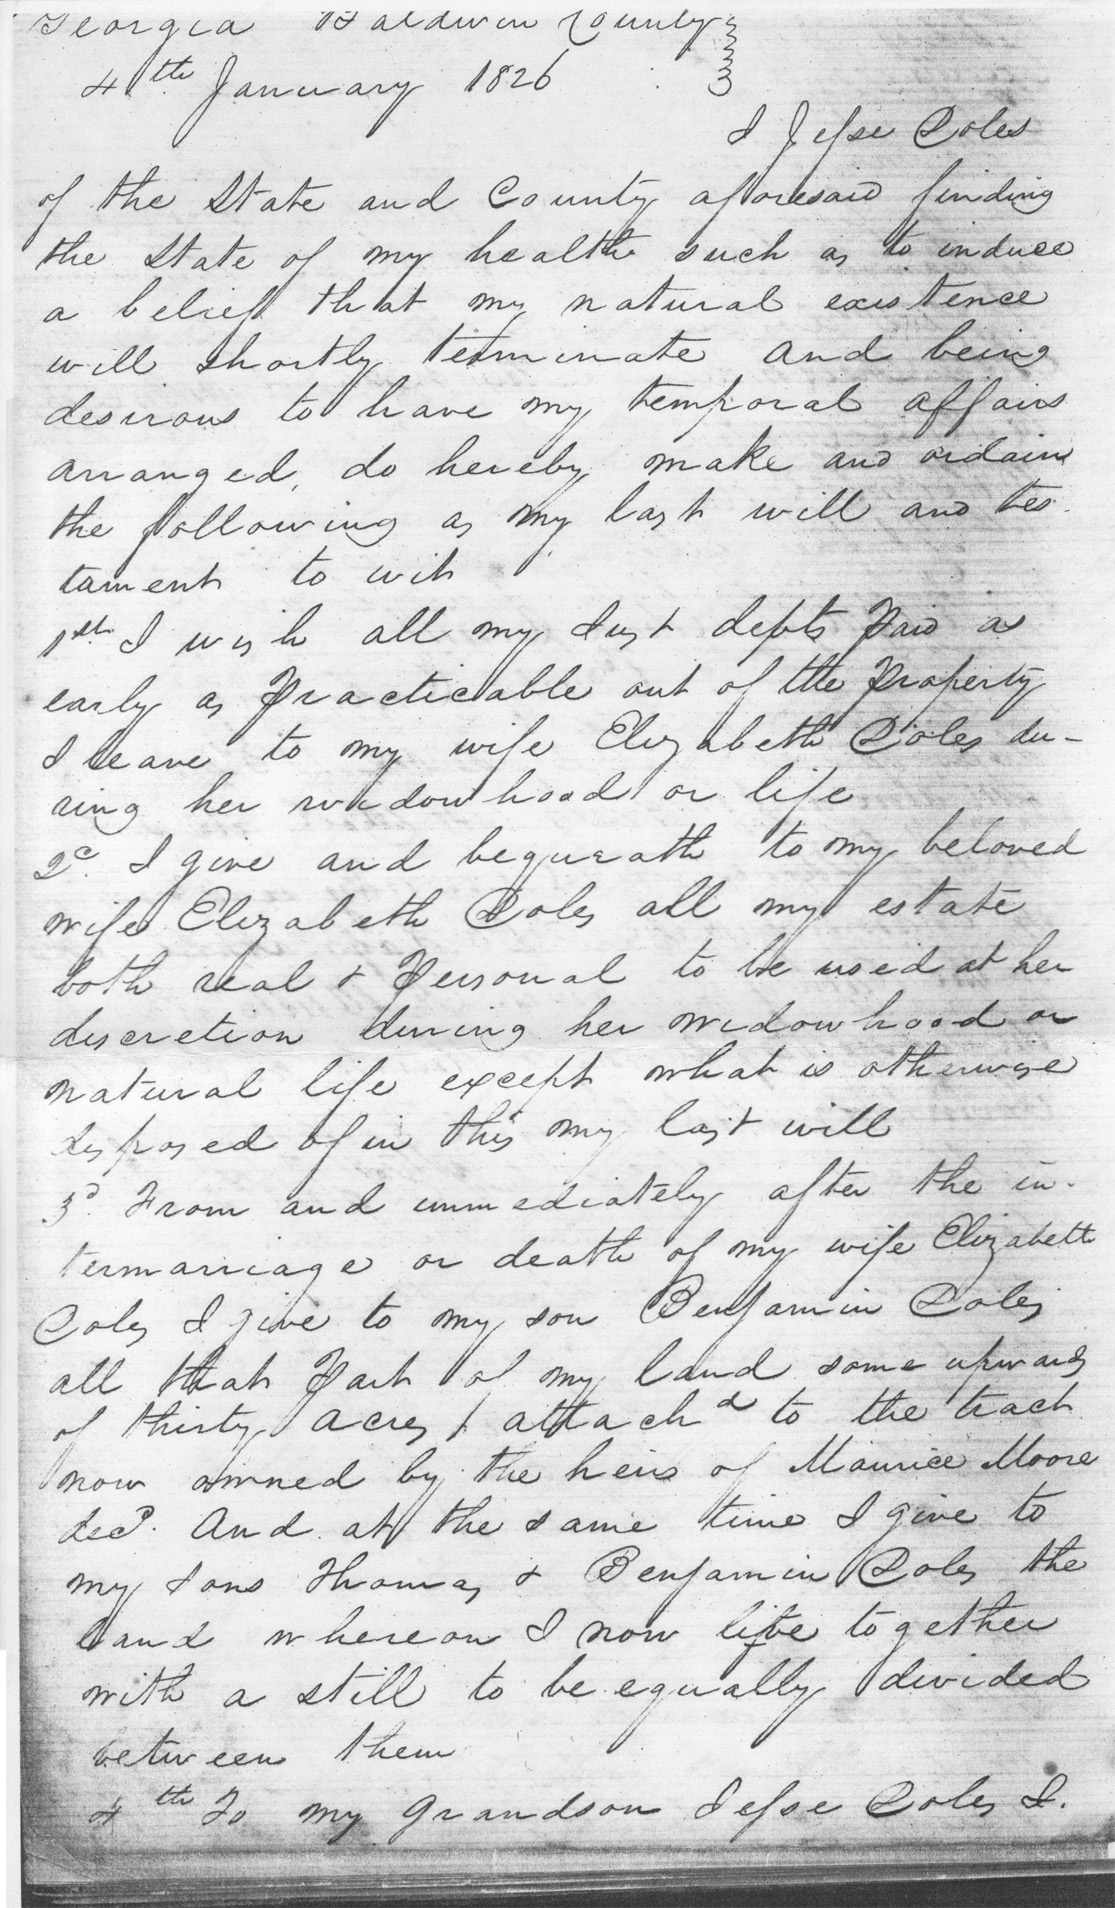 Georgia Baldwin County
4th January 1826
I Jesse Coles
of the State and County aforesaid finding
the State of my health such as to induce
a belief that my natural existence
will shortly terminate and being
desirous to have my temporal affairs
arranged, do hereby make and ordain
the following as my last will and tes-
tament to wit
1st I wish all my Just debts Paid as
early as Practicable out of the Property
I leave to my wife Elizabeth Coles du-
ring her widowhood or life
2d. I give and bequeath to my beloved
wife Elizabeth Coles all my estate
both real & Personal to be used at her
discretion during her widowhood or
natural life except what is otherwise
disposed of in this my last will
3d. From and immediately after the in-
termarriage or death of my wife Elizabeth
Coles I give to my son Benjamin Coles
all that Part of my land some upwards
of thirty acres attachd to the tract
now owned by the heirs of Maurice Moore
decd. And at the same time I give to
my sons Thomas & Benjamin Coles the
land whereon I now live together
with a still to be equally divided
between them
4th To my Grandson Jesse Coles I.